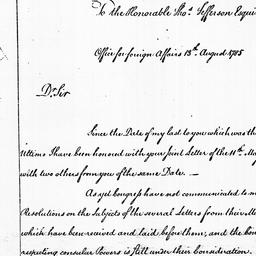 To the Honorable Tho.s Jefferson Esqui
Office for foreign Affairs 13th August 1785
Dr Sir
Since the Date of my last to you which was th
Ultimo I have been honored with your joint Letter of the 11th Ma
with two others from you of the same Date —
As yet Congress have not communicated to m
Resolutions on the Subjects of the several Letters from their M
which have been received and laid before them, and the bu
respecting consular Powers is still under their Consideration.